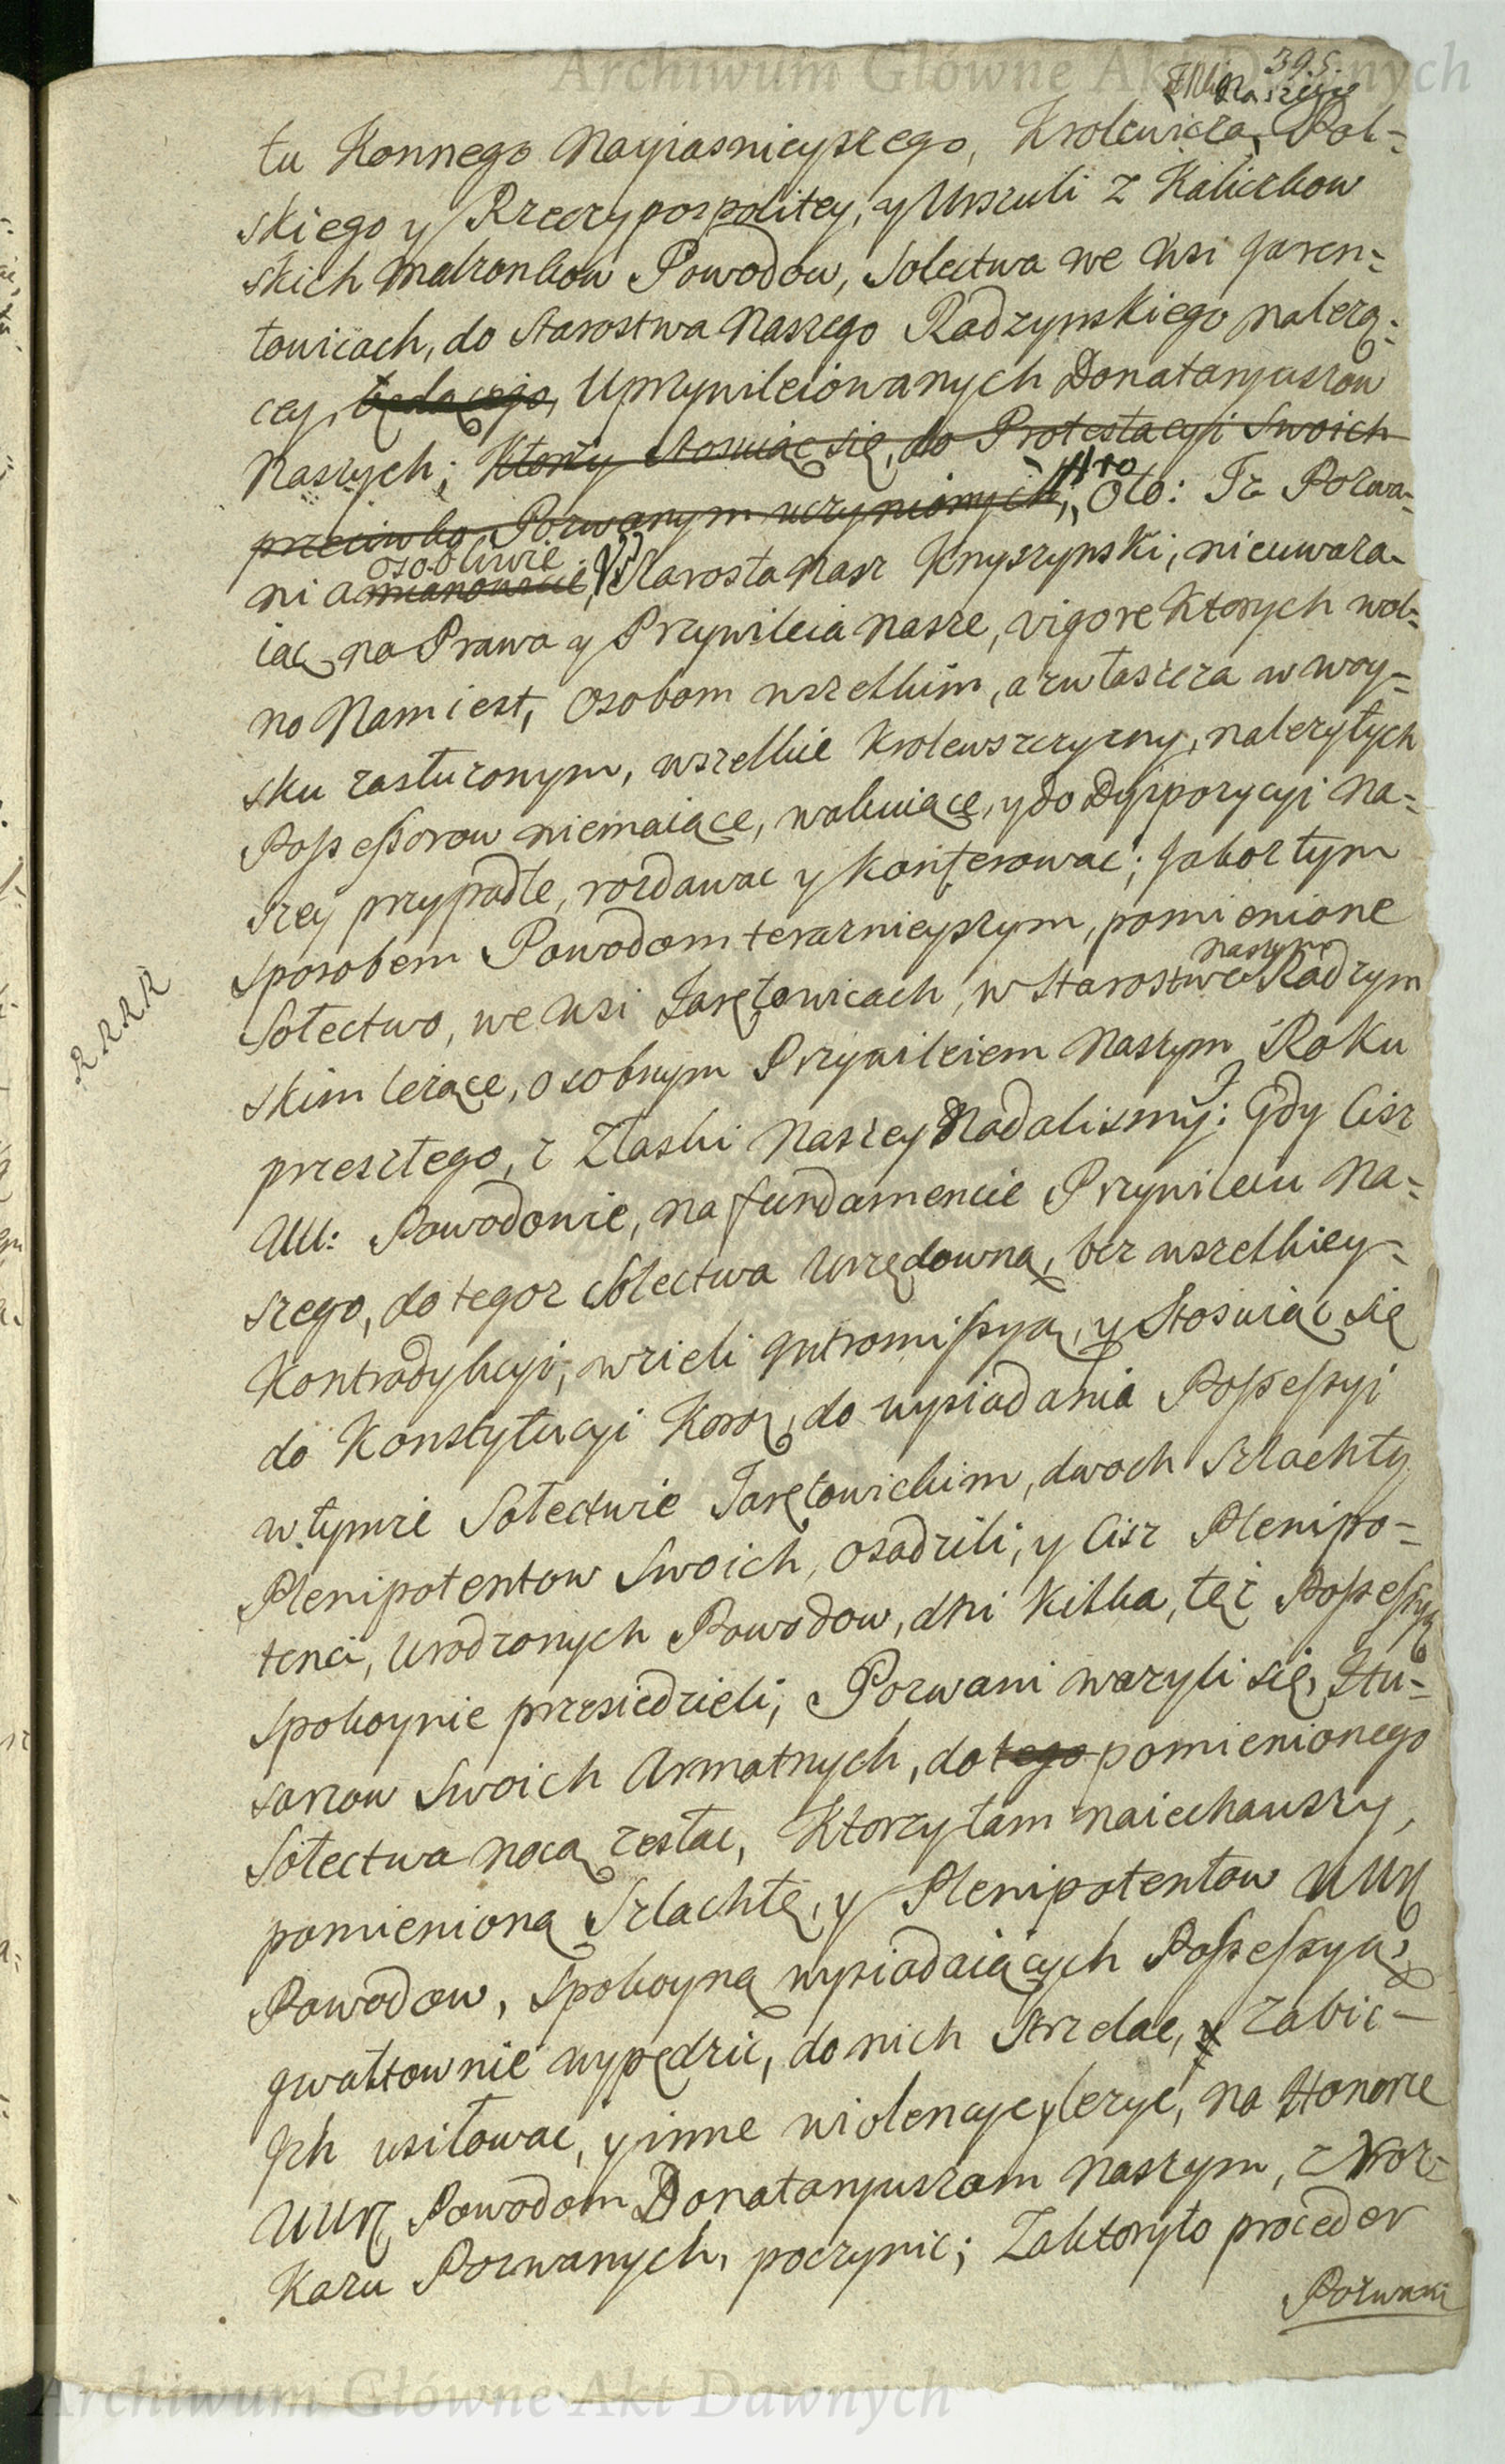 Archiwum Główne Akt Dawnych
395
Naszego
tu Konnego Nayiasnieyszego, Krolewicza, Pol-
skiego y Rzeczypospolitey, y Urszuli z Kaliczkow
skich małzonkow Powodow, Solectwa we Wsi Jaren-
towicach, do Starostwa Naszego Radzynskiego nalezą-
cey, będącego, Uprzywileiowanych Donataryuszow
Naszych; Ktorzy stosuiąc się, do Protestacyi Swoich
przeciwko Pozwanym uczynionych, Oto: Iz Pozwa-
osobliwie
ni a mianowicie, Starosta Nasz Knyszynski, nieuwaza-
iąc na Prawa y Przywileia Nasze, vigore ktorych wol-
no Nam iest, Osobom wszelkim, a zwłaszcza w woy-
sku zasłuzonym, wszelkie Krolewszczyzny, nalezytych
Possessorow niemaiące, wakuiące, y do Dyspozycyi Na-
szey przypadłe, rozdawac y Konferowac; Jakoz tym
sposobem Powodom teraznieyszym, pomienione
naszym
Sołectwo, we Wsi Jarętowicach, w Starostwie Radzyn
RRRR
skim lezące, osobnym Przywileiem Naszym Roku
przeszłego, z Łaski Naszey Nadalismy: Gdy ciz
UU: Powodowie, na fundamencie Przywileiu Na-
szego, do tegoz Solectwa Urzędowną, bez wszelkiey-
Kontradykcyi, wzieli Intromissyą, y Stosuiąc się
do Konstytucyi Koroñ, do wysiadania Possessyi
w tymze Sołectwie Jarętowickim, dwoch Szlachty
Plenipotentow Swoich, osadzili, y ciz Plenipo-
tenci, Urodzonych Powodow, dni kilka, tęż Possessyą
spokoynie przesiedzieli; Pozwani wazyli się, Złu-
sarzow Swoich Armatnych, do tego pomienionego
Sołectwa nocą zesłac, Ktorzy tam naiechawszy,
pomienioną Szlachtę, y Plenipotentow UUrz
Powodow, spokoyną wysiadaiących Possessyą,
gwałtownie wypędzic, do nich strzelac, y zabic-
Ych usiłowac, y inne wiolencye y lezye, na Honorze
UUrz Powodom Donataryuszom Naszym, z Roz-
Kazu Pozwanych, poczynic; Zaktoryto proceder
Pozwani
Archiwum Główne Akt Dawnych